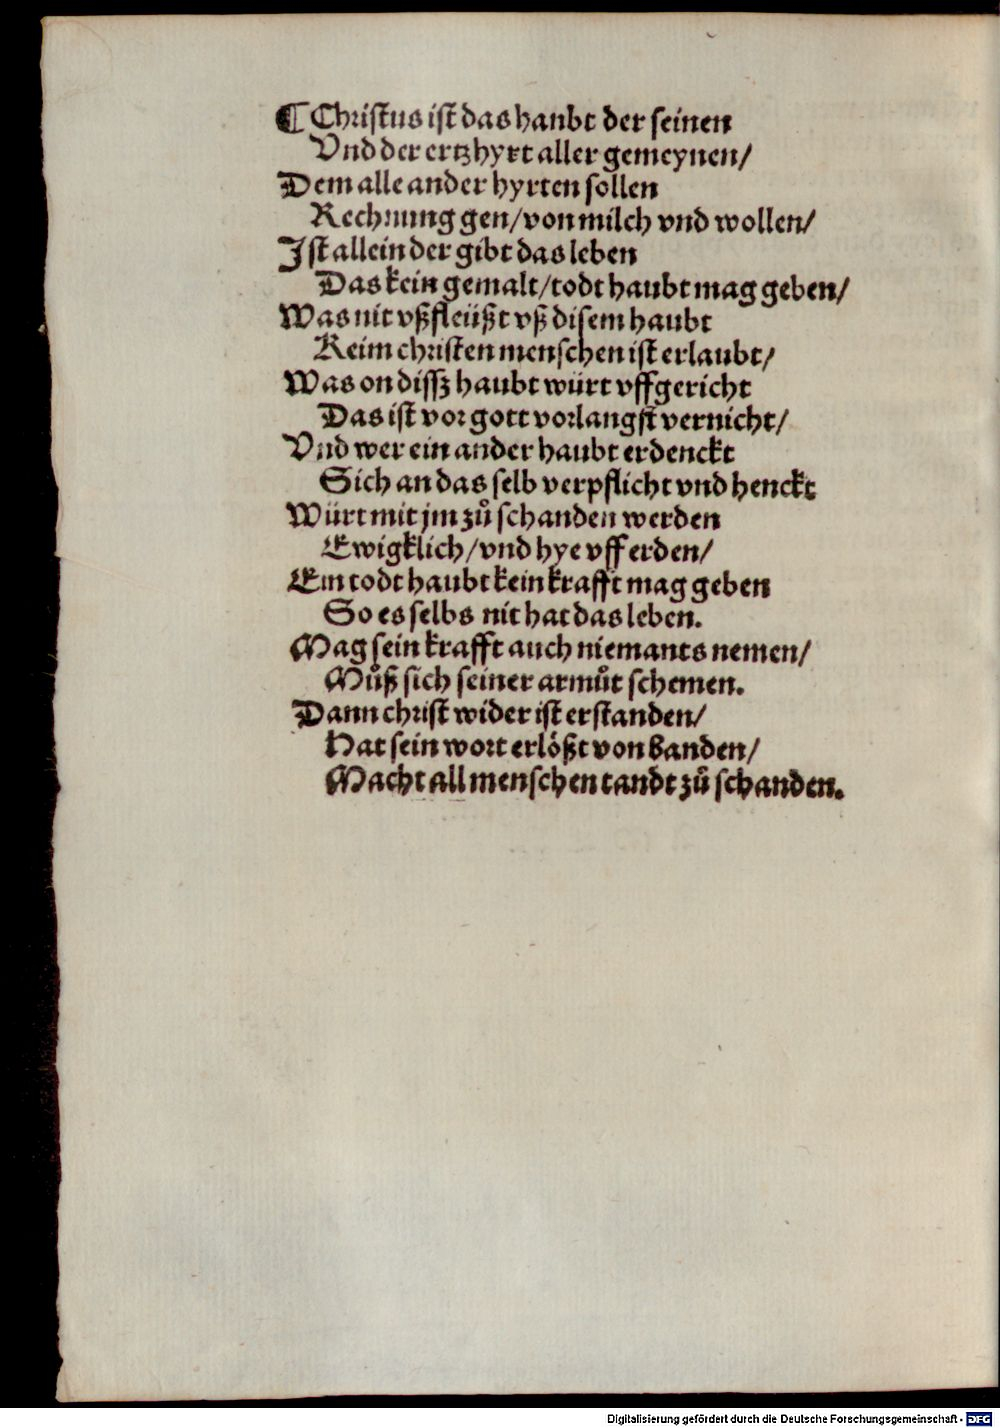 ¶ Christus ist das haubt der seinen
Vnd der ertzhyrt aller gemeynen/
Dem alle ander hyrten sollen
Rechnung gen/ von milch vnd wollen/
Ist allein der gibt das leben
Das kein gemalt/ todt haubt mag geben/
Was nit vßfleüßt vß disem haubt
Keim christen menschen ist erlaubt/
Was on dissz haubt würt vffgericht
Das ist vor gott vorlangst vernicht/
Vnd wer ein ander haubt erdenckt
Sich an das selb verpflicht vnd henckt
Würt mit jm zuͦ schanden werden
Ewigklich/ vnd hye vff erden/
Ein todt haubt kein krafft mag geben
So es selbs nit hat das leben.
Mag sein krafft auch niemants nemen/
Muͦß sich seiner armuͦt schemen.
Dann christ wider ist erstanden/
Hat sein wort erlößt von banden/
Macht all menschen tandt zuͦ schanden.
Digitalisierung gefördert durch die Deutsche Forschungsgemeinschaft - DFG